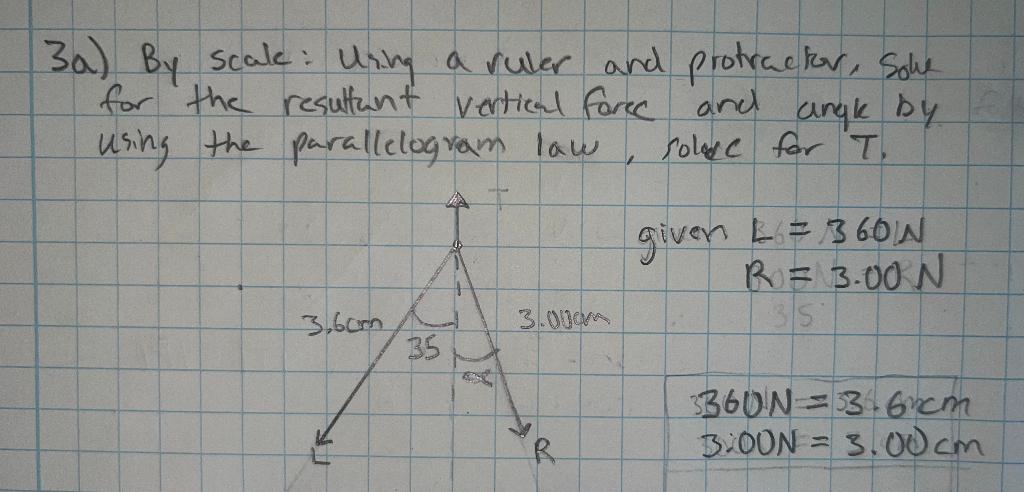 3a) By scale: Using a ruler and protractor, Solve
for the resultant vertical force and angle by
using the parallelogram law, solve for T.
T
given L = 360N
R = 3.00 N
35
3.6cm
3.00cm
35
∝
360N = 3.6cm
3.00N = 3.00cm
L
R